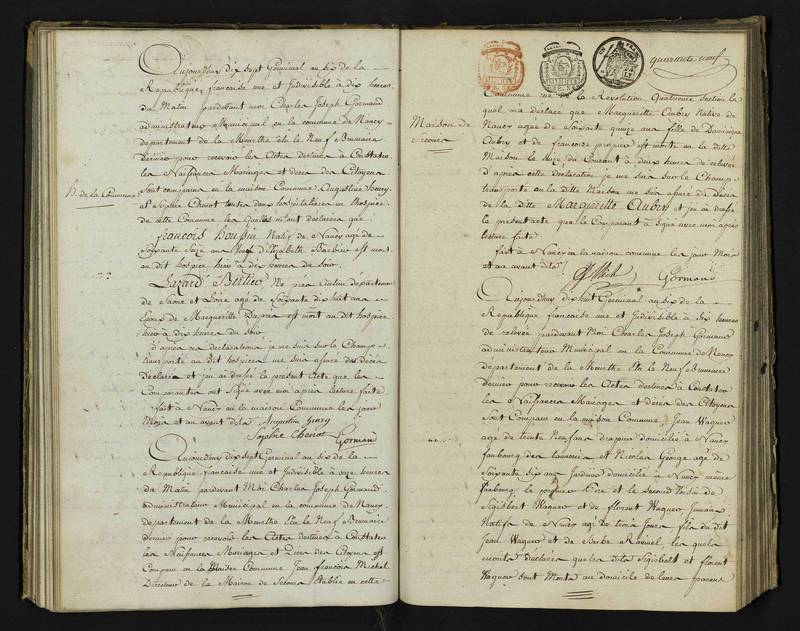 Aujourdhuy dix sept Germinal an six de la
Republique française une et Indivisible à dix heures
du Matin pardevant moi Charles Joseph Gormand
administrateur Municipal en la commune de Nancy
departement de la Meurthe élu le Neuf Brumaire
dernier pour recevoir les Actes destinés à Constater
les Naissances Mariages et décès des Citoyens
h. de la Commune
sont comparus en la maison Commune Augustine henry
et Sophie Chenot toutes deux hospitalieres en l'hospice
de cette Commune les quelles m'ont declarées que
françois houssin Natif de Nancy agé de
Soixante Seize ans d'Elizabeth Barbier est mort
au dit hospice hier à dix heures du Soir
Lazard Bertier Né près Autun departement
de Saone et Loire agé de Soixante dix huit ans
Epoux de Marguerite Dupres est mort au dit hospice
hier à dix heures du Soir
d'après ces declarations je me suis sur le Champ
transporté au dit hospice me suis assuré des Décès
déclarés et j'en ai dressé le present Acte que les
Comparantes ont Signé avec moi après lecture faite
fait à Nancy en la maison Commune les jour
Mois et an avant dits Augustin henry
Sophie Chenot Gormand
Aujourdhuy dix sept Germinal an six de la
Republique française une et Indivisible à onze heures
du Matin pardevant Moi Charles Joseph Gormand
administrateur Municipal en la commune de Nancy
departement de la Meurthe Elu le Neuf Brumaire
dernier pour recevoir les Actes destinés à Constater
les Naissances Mariages et Décès des Citoyens est
Comparu en la Maison Commune Jean françois Michel
Directeur de la Maison de Secours Etablie en cette
quarante neuf
Commune rue de la Révolution Quatrieme Section le
quel m'a déclaré que Marguerite Aubry Native de
Maison de
Secours
Nancy agée de Soixante quinze ans fille de Dominique
Aubry et de francoise est morte en la ditte
Maison le Seize du Courant à deux heures de relevée
d'après cette declaration je me suis sur le Champ
transporté en la ditte Maison me suis assuré du décès
de la ditte Marguerite Aubry et j'en ai dressé
le present acte que le Comparant à Signé avec moi après
lecture faite
fait à Nancy en la maison commune les jour Mois
et an avant dits Michel Gormand
Aujourdhuy dix huit Germinal an six de la
Republique française une et Indivisible à Six heures
de relevée pardevant Moi Charles Joseph Gormand
administrateur Municipal en la Commune de Nancy
departement de la Meurthe Elu le Neuf Brumaire
dernier pour recevoir les Actes destinés à Constater
les Naissances Mariages et décès des Citoyens
Sont Comparu en la maison Commune Jean Waquer
agé de trente Neuf ans drapier domicilié à Nancy
faubourg des et Nicolas George agé de
Soixante six ans Jardinier domicilié à Nancy même
faubourg le premier Pere et le second Voisin de
Sigisbert Waquer et de florent Waquer Jumeaux
Natifs de Nancy agés de trois jours fils du dit
Jean Waquer et de Barbe Ravinel les quels
m'ont déclarés que les dits Sigisbert et florent
Waquer sont Morts au domicile de leurs parens